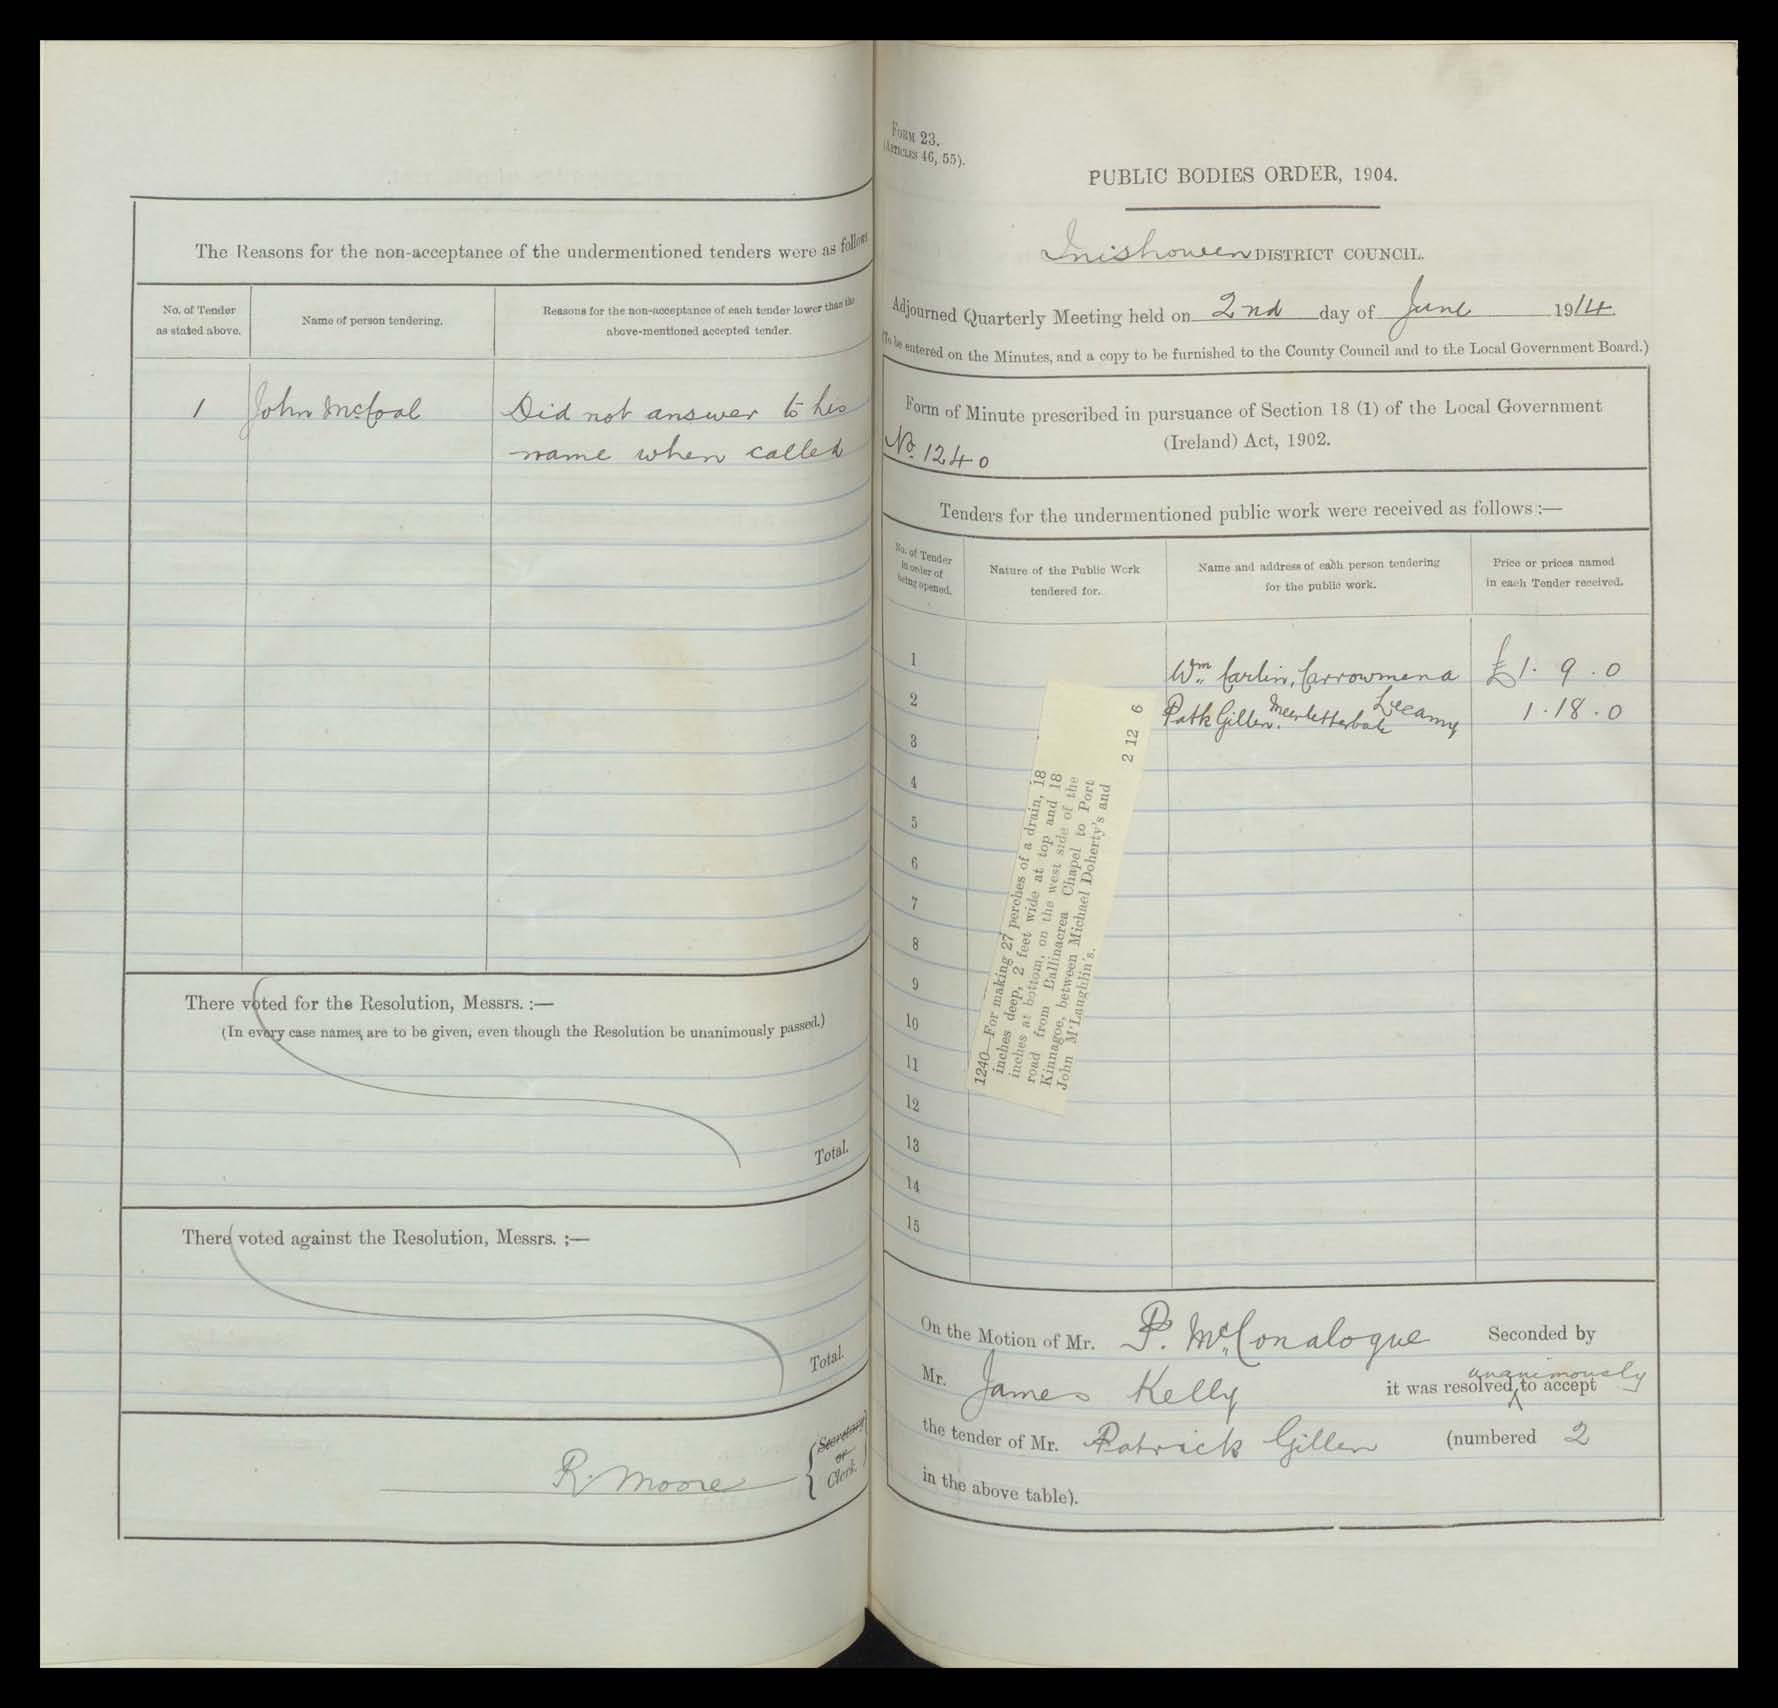 The Reasons for the non-acceptance of the undermentioned tenders were as follows
No. of Tender
as stated above.
Name of person tendering.
Reasons for the non-acceptance of each tender lower than the
above-mentioned accepted tender.
1 John McCoal Did not answer to his
name when called
There voted for the Resolution, Messrs. :—
(In every case names are to be given, even though the Resolution be unanimously passed.)
Total.
There voted against the Resolution, Messrs. :—
Total.
R. Moore
Secretary
or
Clerk.
FORM 23.
(ARTICLES 46, 55).
PUBLIC BODIES ORDER, 1904.
Inishowen DISTRICT COUNCIL.
Adjourned Quarterly Meeting held on 2nd day of June 1914
(To be entered on the Minutes, and a copy to be furnished to the County Council and to the Local Government Board.)
Form of Minute prescribed in pursuance of Section 18 (1) of the Local Government
(Ireland) Act, 1902.
No. 1240
Tenders for the undermentioned public work were received as follows :—
No. of Tender
in order of
being opened.
Nature of the Public Work
tendered for.
Name and address of each person tendering
for the public work.
Price or prices named
in each Tender received.
1 Wm. Carlin, Carrowmena £1. 9. 0
2 Patk Gillen. Leccamy 1. 18. 0
3
4
5
6
7
8
9
10
11
12
13
14
15
1240—For making 27 perches of a drain, 18
inches deep, 2 feet wide at top and 18
inches at bottom, on the west side of the
road from Ballinacrea Chapel to Port
Kinnagoe, between Michael Doherty's and
John M'Laughlin's.
2 12 6
On the Motion of Mr. P. McConalogue Seconded by
Mr. James Kelly it was resolved unanimously to accept
the tender of Mr. Patrick Gillen (numbered 2
in the above table).